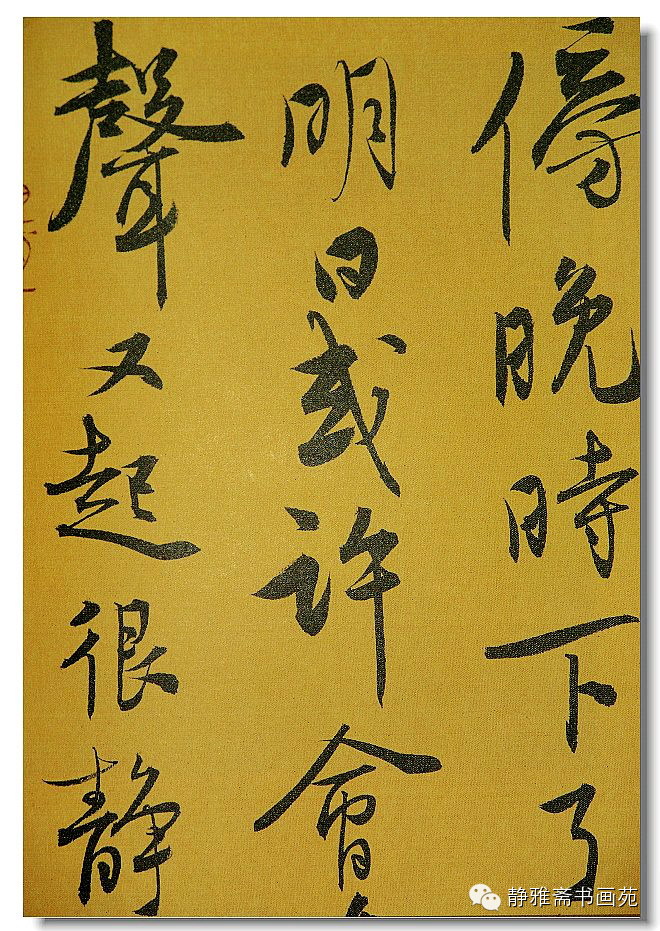 傍晚時下了
明日或許會
聲又起很静
静雅斋书画苑